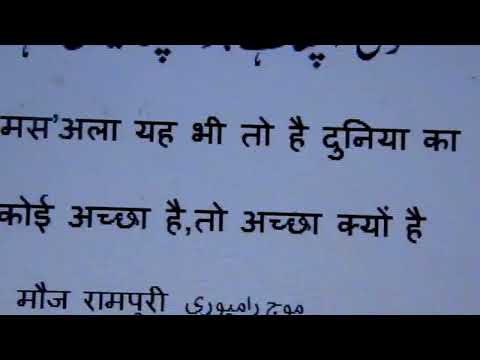 मस'अला यह भी तो है दुनिया का
कोई अच्छा है,तो अच्छा क्यों है
मौज रामपुरी موج رامپوری